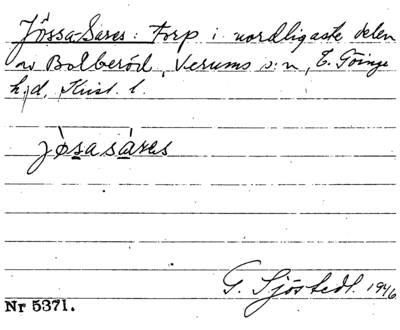 Jössa-Sares: torp i nordligaste delen
av Bolberöd, Verums s:n, T. Göinge
h:d, Krist. l.
jòsasáres
G. Sjöstedt. 1946.
Nr 5371.